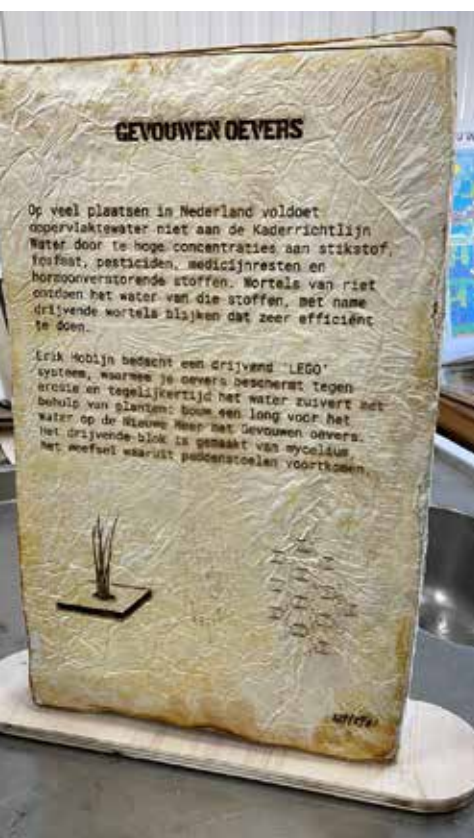 GEVOUWEN OEVERS
Op veel plaatsen in Nederland voldoet
oppervlaktewater niet aan de Kaderrichtlijn
Water door te hoge concentraties aan stikstof,
fosfaat, pesticiden, medicijnresten en
hormoonverstorende stoffen. Wortels van riet
ontdoen het water van die stoffen, met name
drijvende wortels blijken dat zeer efficiënt
te doen.
Erik Hobijn bedacht een drijvend 'LEGO'
systeem, waarmee je oevers beschermt tegen
erosie en tegelijkertijd het water zuivert met
behulp van planten: bouw een long voor het
water op de Nieuwe Meer met Gevouwen oevers.
Het drijvende blok is gemaakt van mycelium,
het weefsel waaruit paddenstoelen voortkomen.